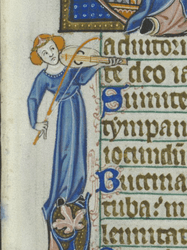 adiutori
te deo ia
Sumite
tympan
iocundū
Buccina
tuba in
lennitat